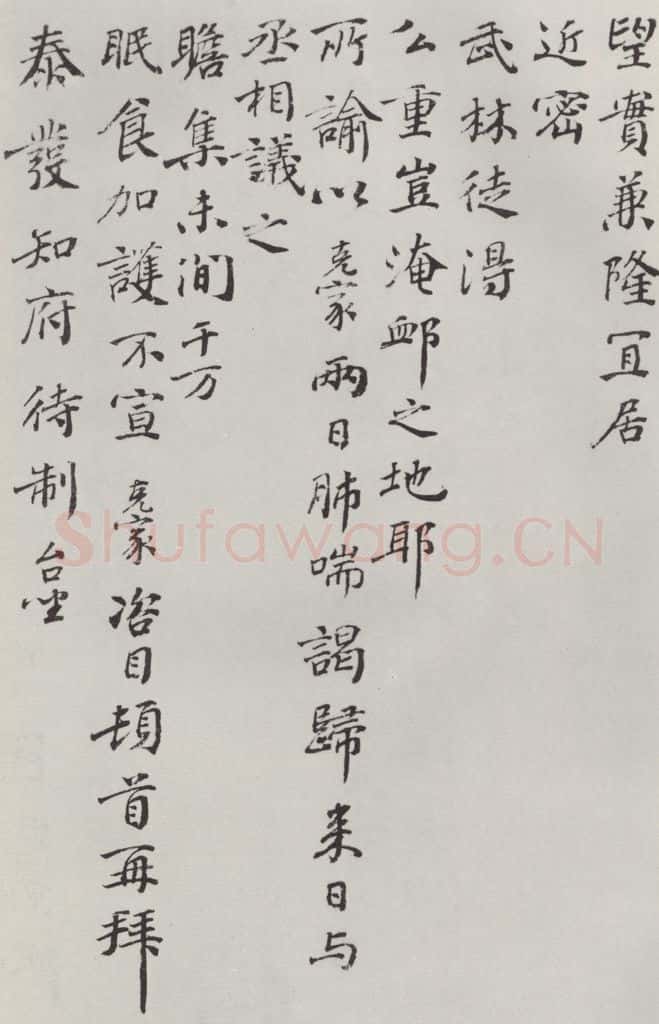 望實兼隆冝居
近密
武林徒得
公重豈淹卹之地耶
所諭以克家兩日肺喘謁歸来日与
丞相議之
瞻集未間千万
眠食加護不宣克家咨目頓首再拜
泰發知府待制台坐
Shufawang.CN